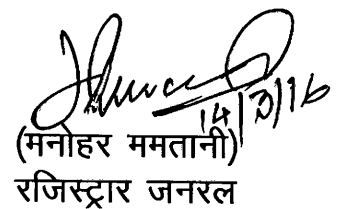 14/3/16
(मनोहर ममतानी)
रजिस्ट्रार जनरल